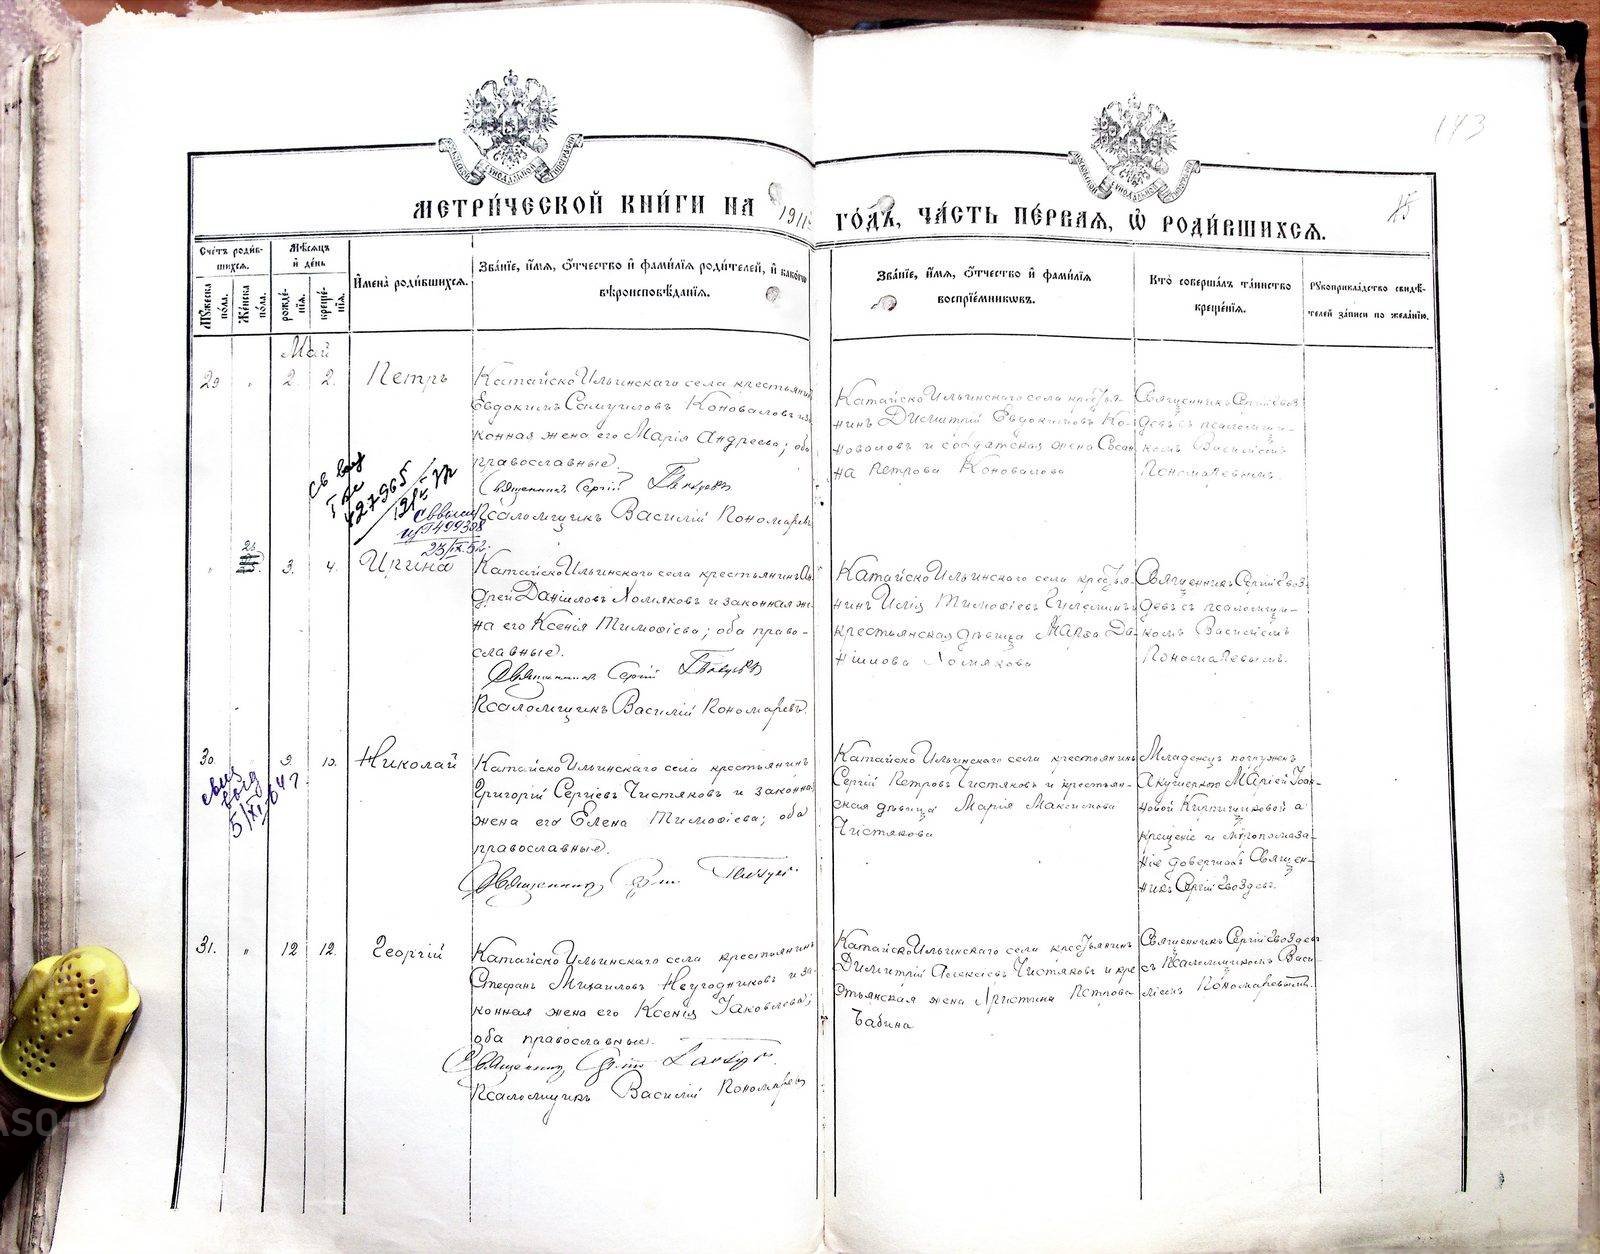 143
МЕТРИ́ЧЕСКОЙ КНИ́ГИ НА 1911 ГО́ДЪ, ЧА́СТЬ ПЕ́РВАЯ, Ѡ҆ РОДИ́ВШИХСѦ.
Сче́тъ роди́в-
шихсѧ.
Мѣ́сѧцъ
и҆ де́нь
Мꙋ́жеска
по́ла.
Же́нска
по́ла.
рожде́-
нїѧ.
креще́-
нїѧ.
И҆мена̀ роди́вшихсѧ.
Зва́нїе, и҆́мѧ, ѻ҆́тчество и҆ фами́лїѧ роди́телей, и҆ како́гѡ
вѣроисповѣ́данїѧ.
Зва́нїе, и҆́мѧ, ѻ҆́тчество и҆ фами́лїѧ
воспрїе́мникѡвъ.
Кто̀ соверша́лъ та́инство
креще́нїѧ.
Рꙋкоприкла́дство свидѣ́-
телей за́писи по жела́нїю.
Май
29 " 2. 2. Петръ
КатайскоИльинскаго села крестьянинъ
Евдокимъ Самуиловъ Коноваловъ и за
конная жена его Марія Андреева; оба
православные.
Священникъ Сергій
Псаломщикъ Василій Пономаревъ
КатайскоИльинскаго села кресья-
нинъ Димитрій Евдокимовъ Ко-
новаловъ и солдатская жена Сосан
на Петрова Коновалова
Священникъ Сергій Гвоз
девъ съ псаломщи-
комъ Василіемъ
Пономаревымъ.
427965
499308
23/IX.52.
" 26 3. 4. Ирина
КатайскоИльинскаго села крестьянинъ Ан
дрей Даниловъ Хомяковъ и законная же
на его Ксенія Тимофіева; оба право-
славные.
Священникъ Сергій
Псаломщикъ Василій Пономаревъ.
КатайскоИльинскаго села кресья-
нинъ Илія Тимофіевъ
крестьянская дѣвица Марѳа Да-
нилова Хомякова
Священникъ Сергій Гвоз
девъ съ псаломщи-
комъ Василіемъ
Пономаревымъ.
30. 9. 10. Николай
5/XI-64 г
КатайскоИльинскаго села крестьянинъ
Григорій Сергіевъ Чистяковъ и законная
жена его Елена Тимофіева; оба
православные.
Священникъ
КатайскоИльинскаго села крестьянинъ
Сергій Петровъ Чистяковъ и крестьян-
ская дѣвица Марія Максимова
Чистякова
Младенецъ погруженъ
Акушеркою Маріей Іоан
новой Кирпищиковой а
крещеніе и мѵропомаза-
ніе довершилъ Священ-
никъ Сергій Гвоздевъ.
31. " 12 12. Георгій
КатайскоИльинскаго села крестьянинъ
Стефанъ Михаиловъ Неугодниковъ и за-
конная жена его Ксенія Іаковлева;
оба православные.
Священникъ Сергій
Псаломщикъ Василій Пономаревъ
КатайскоИльинскаго села кресьянинъ
Димитрій Алексіевъ Чистяковъ и кре
стьянская жена Христина Петрова
Бабина
Священникъ Сергій Гвоздевъ
съ Псаломщикомъ Васи-
ліемъ Пономаревымъ.